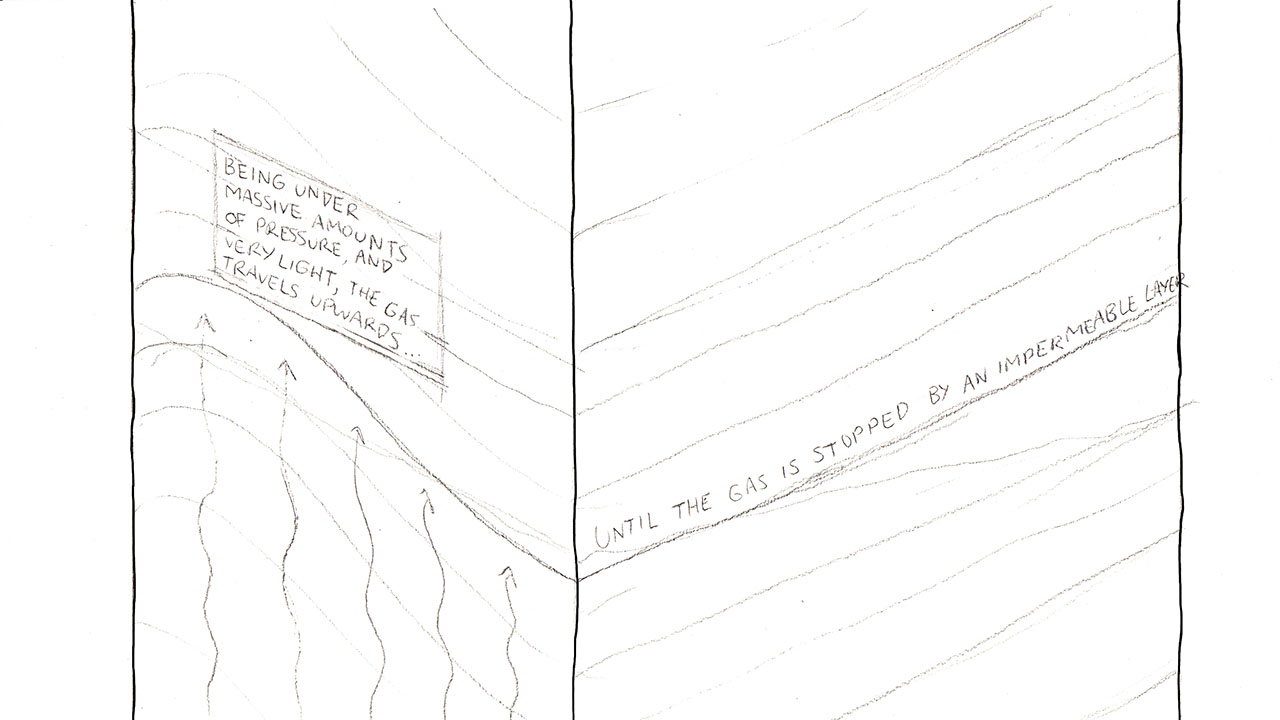 BEING UNDER
MASSIVE AMOUNTS
OF PRESSURE, AND
VERY LIGHT, THE GAS
TRAVELS UPWARDS...
UNTIL THE GAS IS STOPPED BY AN IMPERMEABLE LAYER